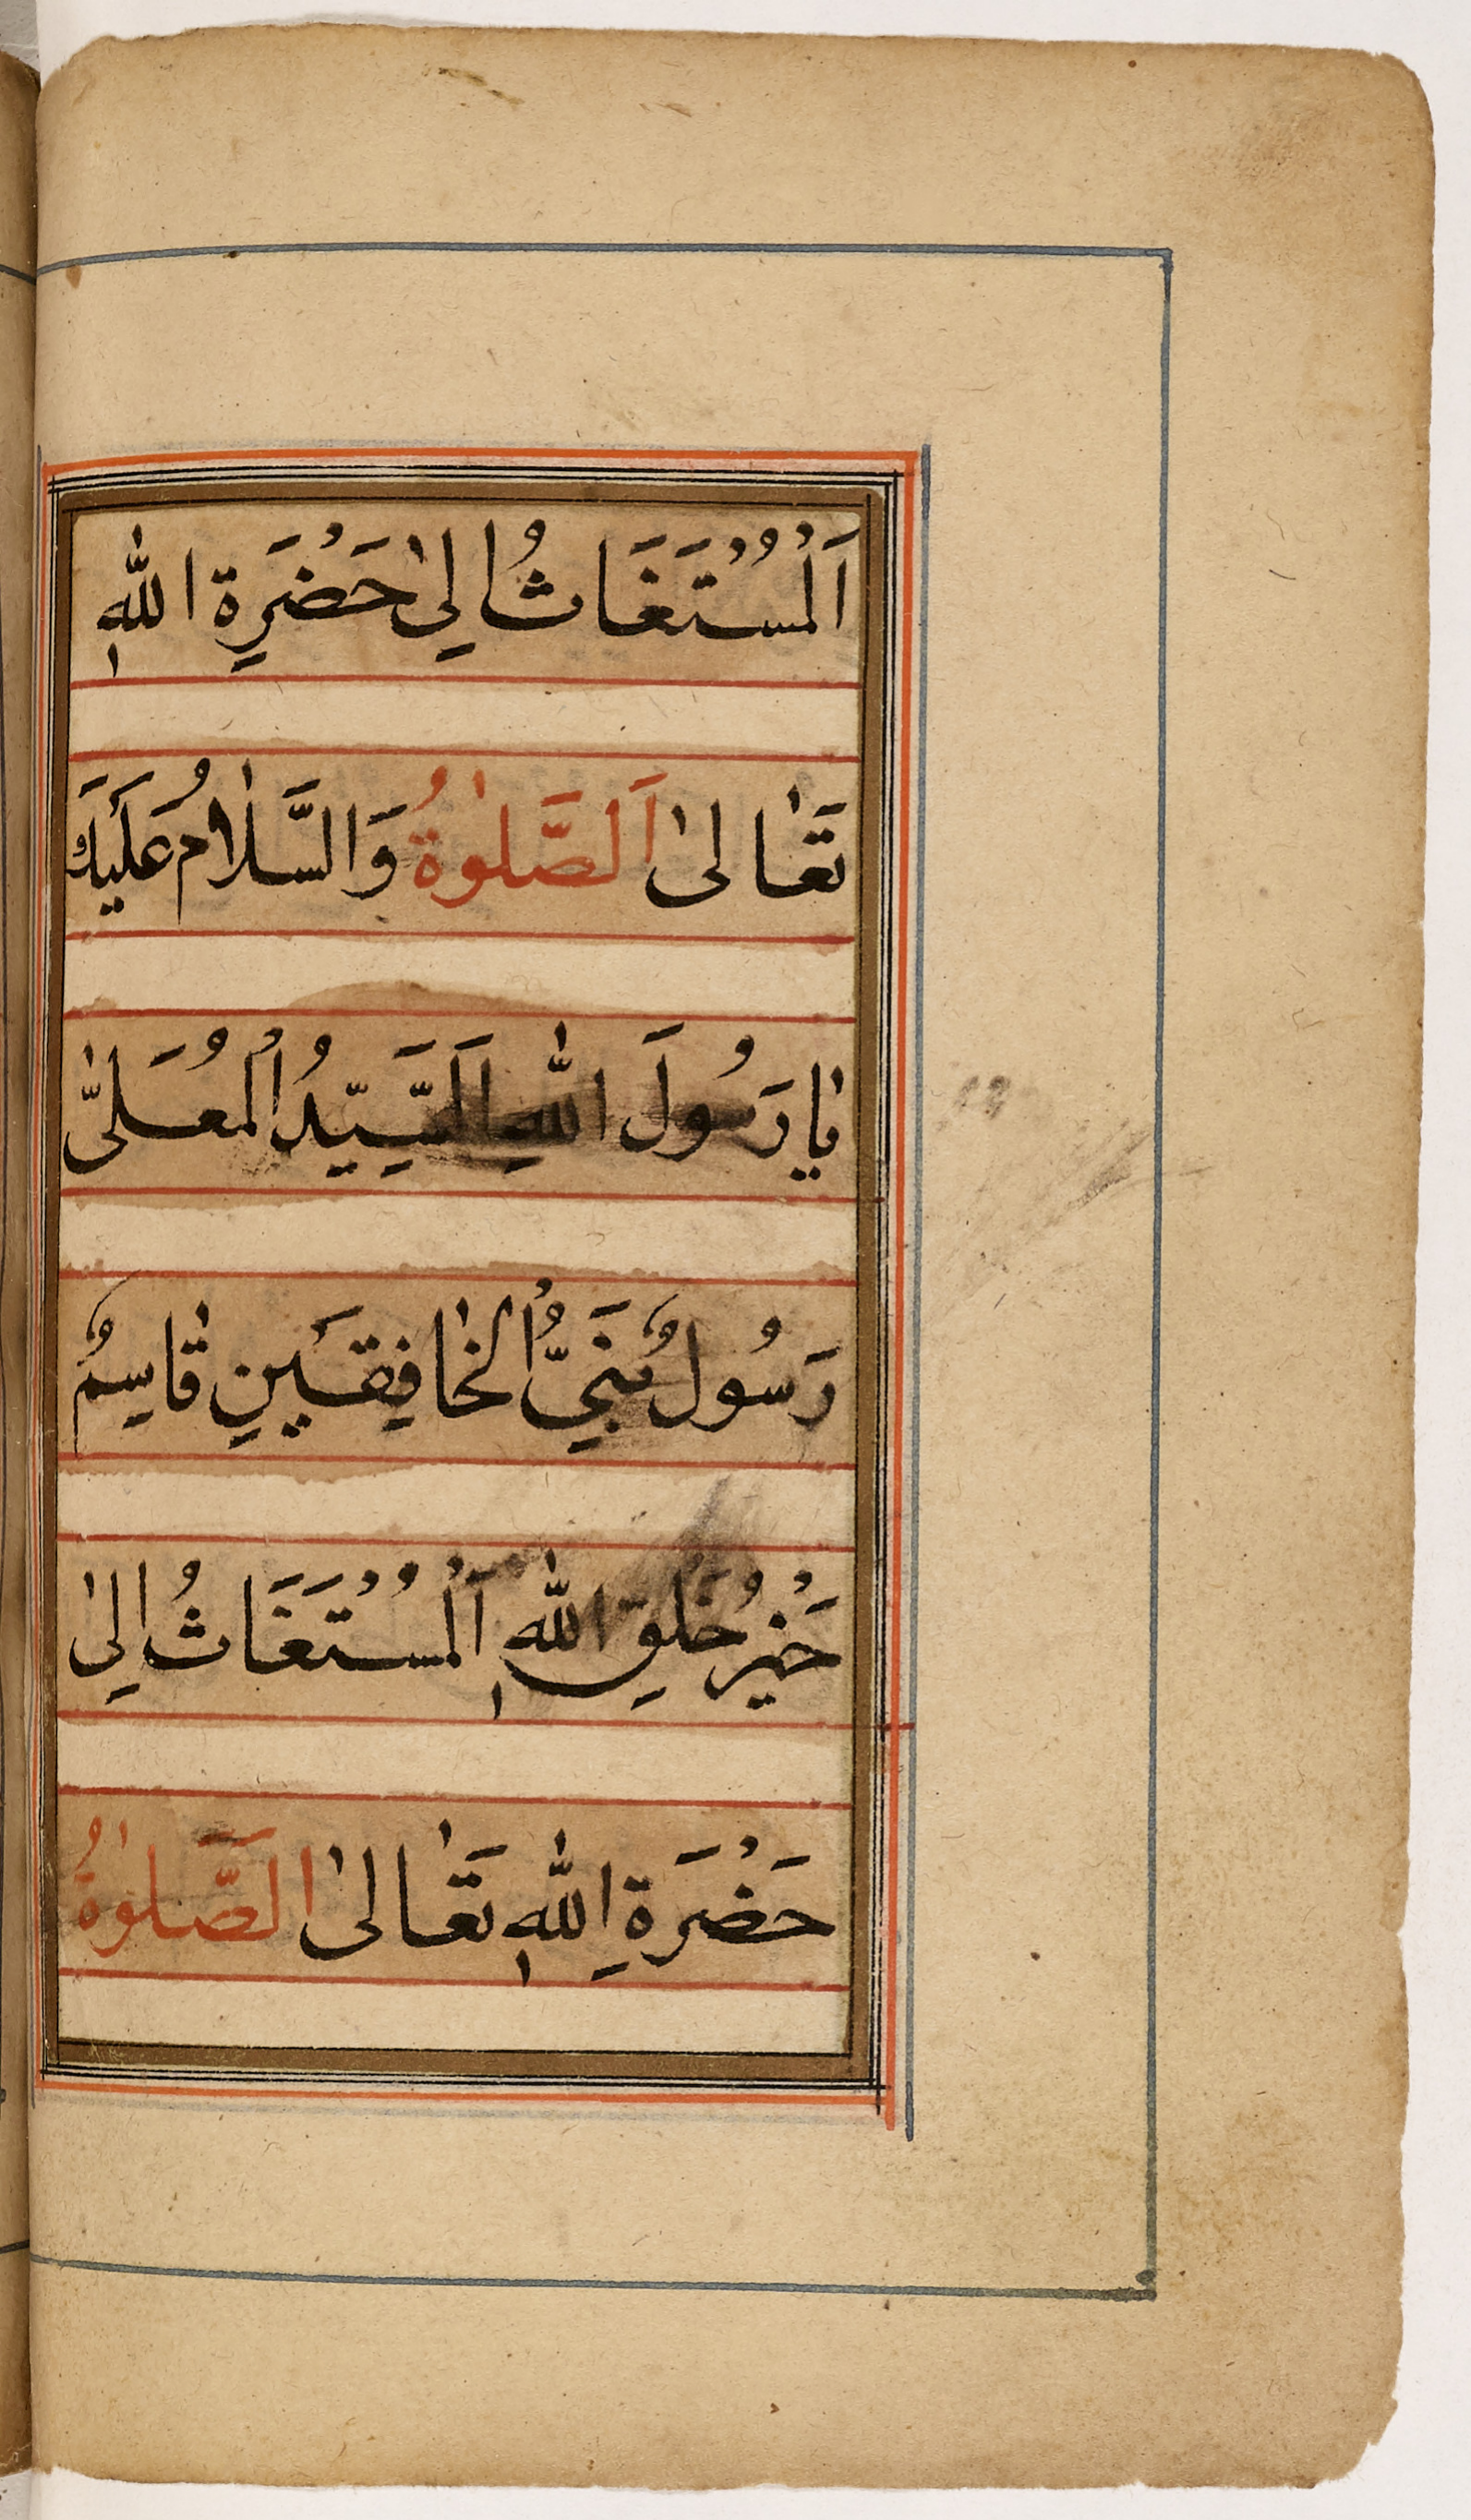 اَلْمُسْتَغَاثُ اِلىٰ حَضْرَةِ اللهِ
تَعٰالىٰ اَلصَّلٰوةُ وَالسَّلٰامُ عَلَيْكَ
يٰا رَسُولَ اللهِ اَلسَّيِّدُ الْمُعَلىّٰ
رَسُولٌ نَبِيُّ الْخٰافِقَيْنِ قٰاسِمٌ
خَيْرُ خَلْقِ اللهِ اَلْمُسْتَغَاثُ اِلىٰ
حَضْرَةِ اللهِ تَعٰالىٰ الَصَّلٰوةُ